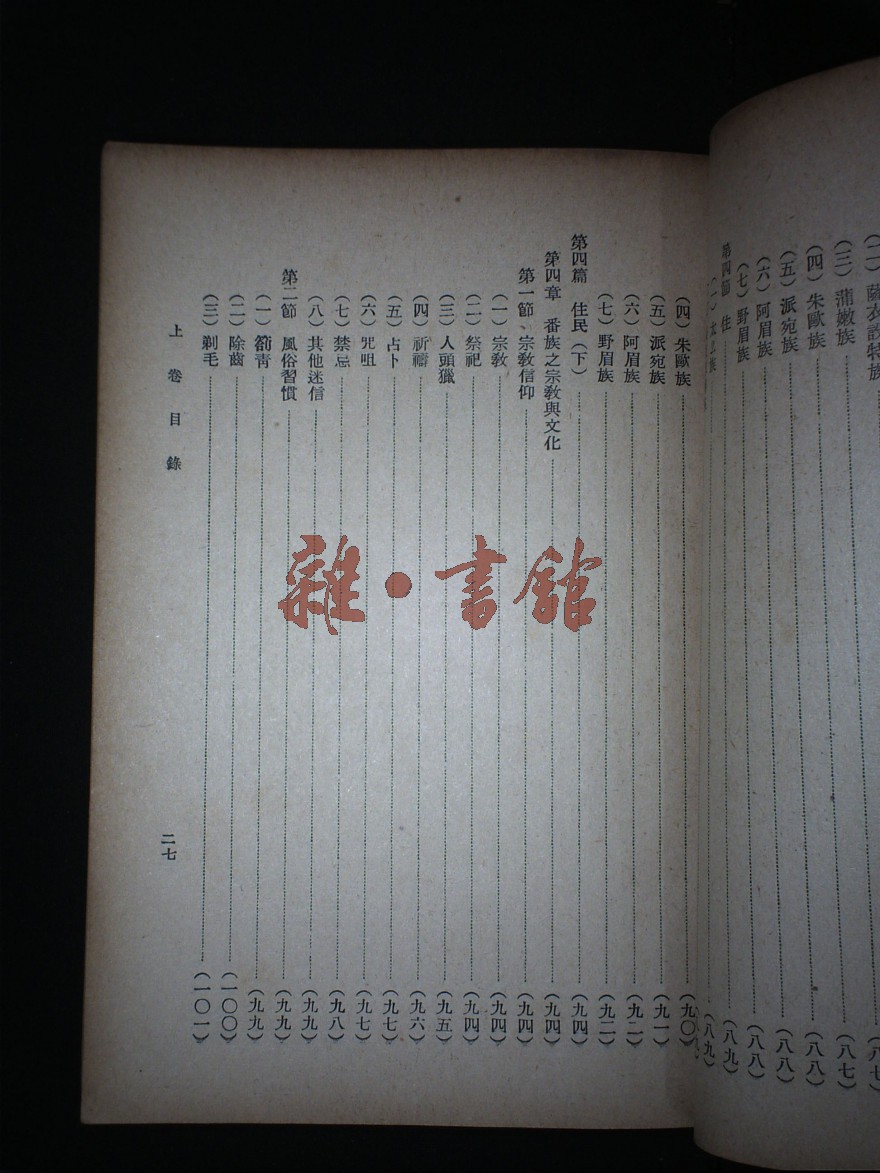 (二) 薩衣設特族 (八七)
(三) 蒲嫩族 (八七)
(四) 朱歐族 (八八)
(五) 派宛族 (八八)
(六) 阿眉族 (八八)
(七) 野眉族
第四節 住 (八九)
(八九)
(四) 朱歐族 (九〇)
(五) 派宛族 (九一)
(六) 阿眉族 (九一)
(七) 野眉族 (九二)
第四篇 住民(下) (九四)
第四章 番族之宗教與文化 (九四)
第一節、宗教信仰 (九四)
(一) 宗教 (九四)
(二) 祭祀 (九四)
(三) 人頭獵 (九五)
(四) 祈禱 (九六)
(五) 占卜 (九七)
(六) 咒咀 (九七)
(七) 禁忌 (九八)
(八) 其他迷信 (九九)
第二節 風俗習慣 (九九)
(一) 箚青 (九九)
(二) 除齒 (一〇〇)
(三) 剃毛 (一〇一)
上卷目錄
二七
雜·書館